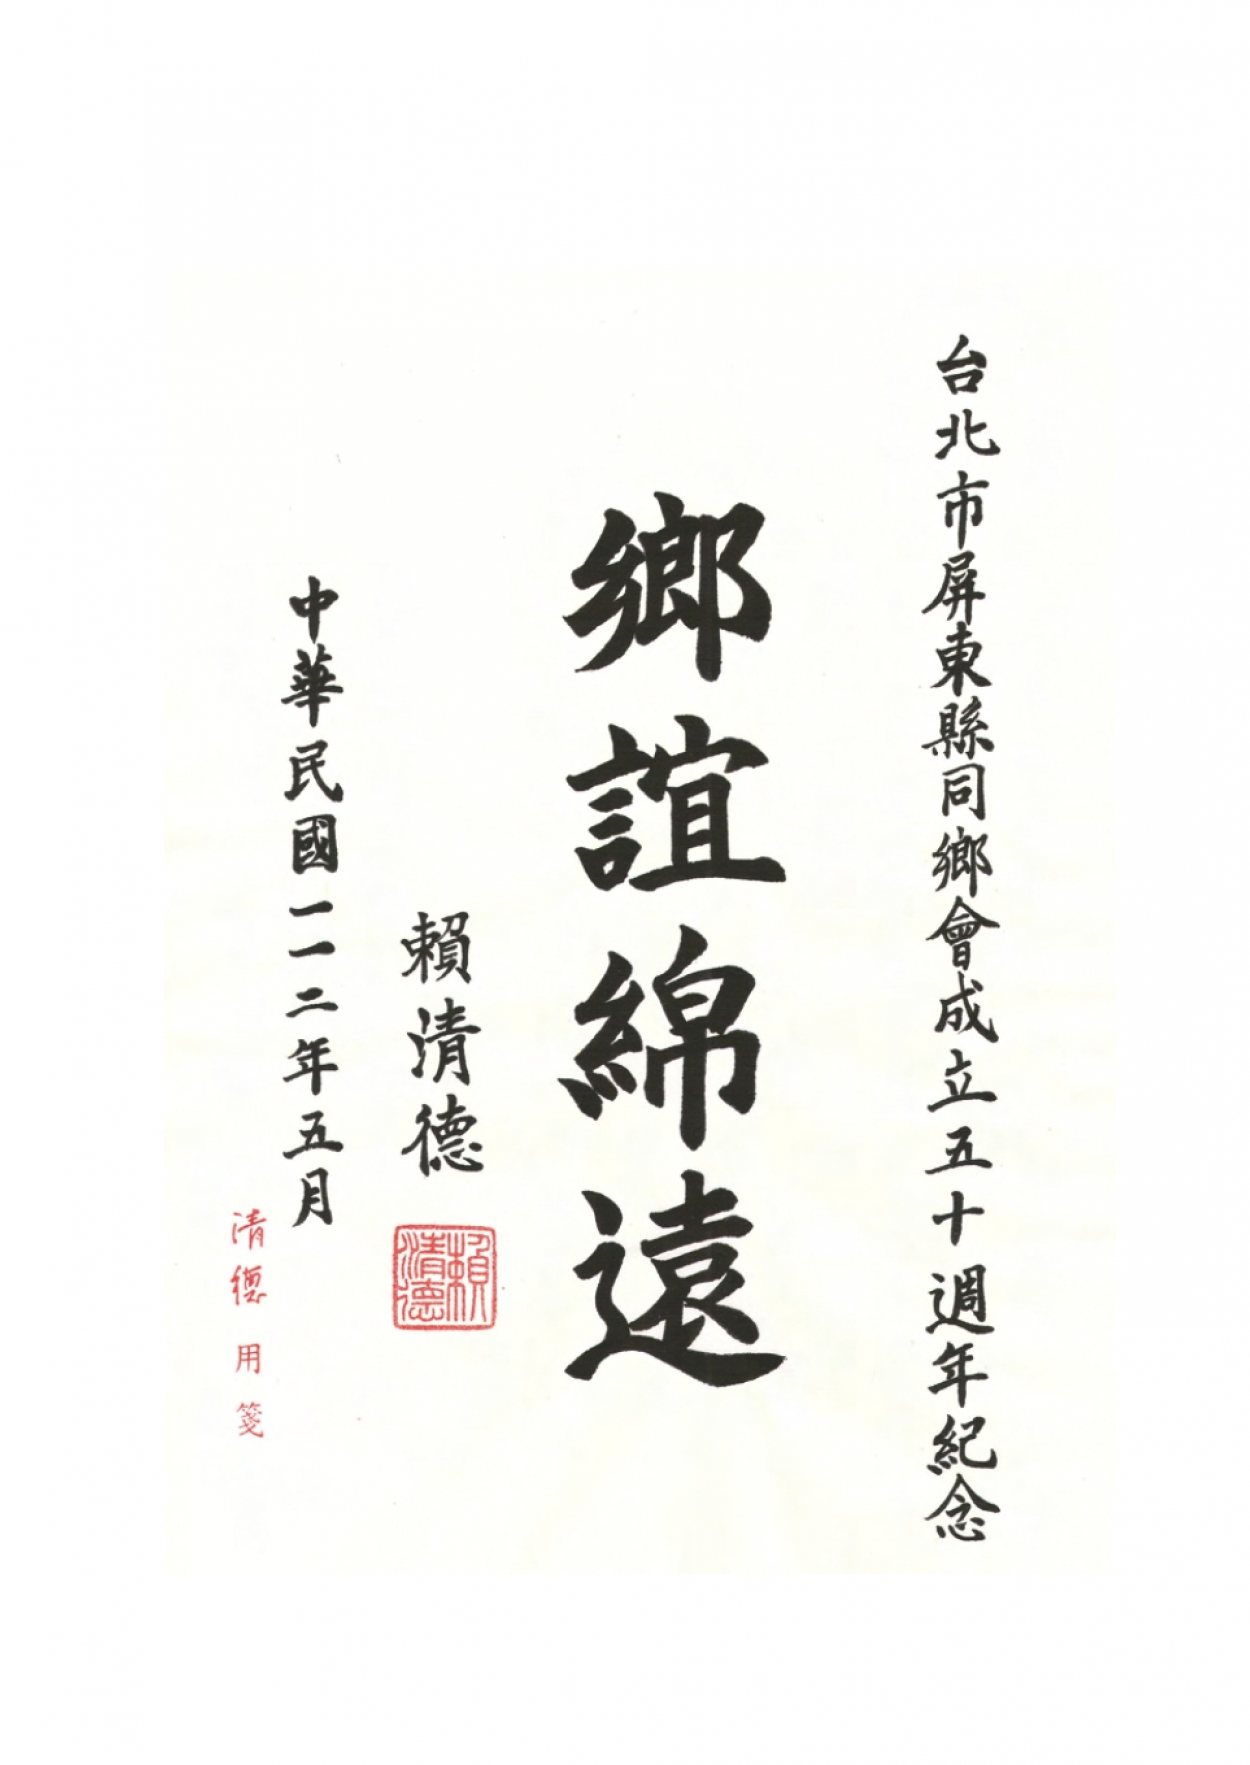 台北市屏東縣同鄉會成立五十週年紀念
鄉誼綿遠
賴清德
賴清德
中華民國一一二年五月
清德用箋